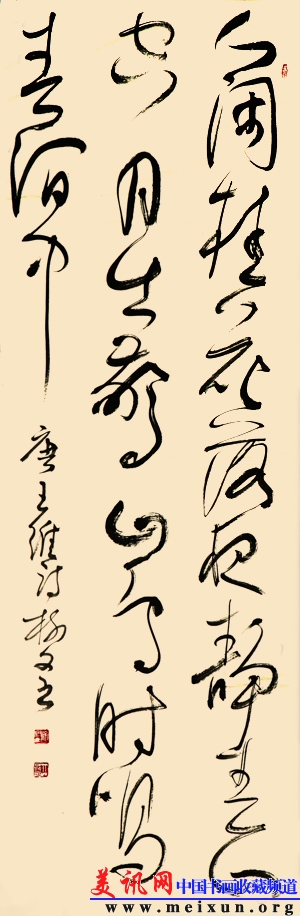 人閒桂花落夜靜春山
空月出驚山鳥時鳴
春澗中
唐王維詩
美讯网 中国书画收藏频道
www.meixun.org